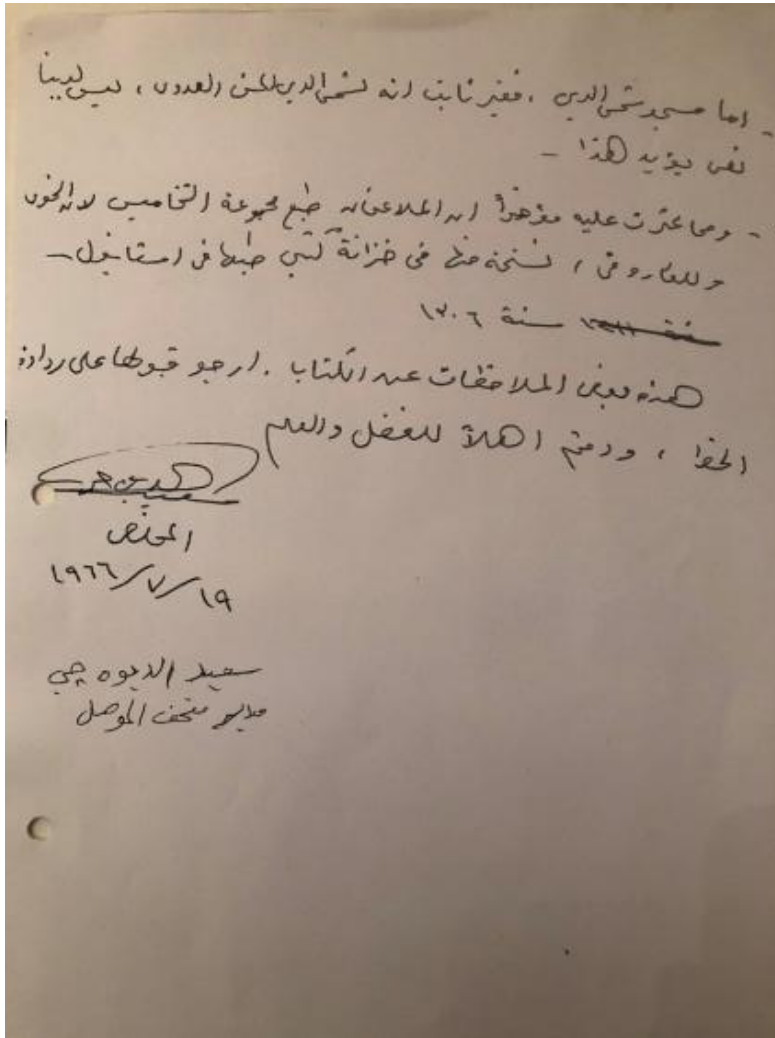 - اما مسجد شمس الدين ، فغير ثابت انه لشمس الدين الحسن العدوى ، ليس لدينا
نص يؤيد هذا -
- ومما عثرت عليه مؤخراً ان الملا عثمان طبع مجموعة التخاميس لابن
وللفاروقي ، نسخة منها في خزانة كتبي طبعها في استانبول -
سنة ١٣٠٦
هذه بعض الملاحظات عن الكتاب . ارجو قبولها على رداءة
الخط ، ودمتم اهلاً للفضل والعلم
المخلص
١٩/٧/١٩٦٦
سعيد الديوه چي
مدير متحف الموصل